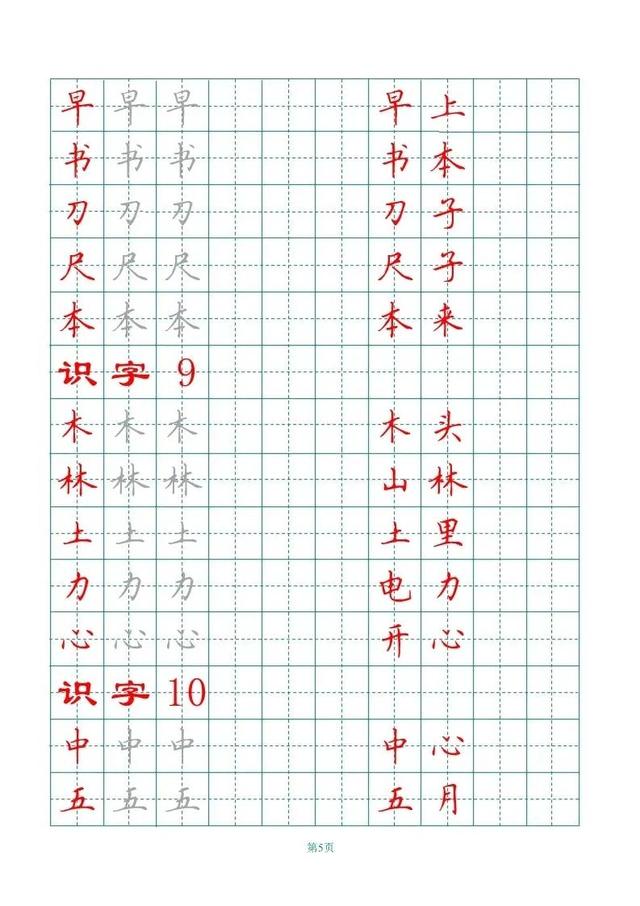 早早早 早上
书书书 书本
刀刀刀 刀子
尺尺尺 尺子
本本本 本来
识字 9
木木木 木头
林林林 山林
土土土 土里
力力力 电力
心心心 开心
识字 10
中中中 中心
五五五 五月
第5页